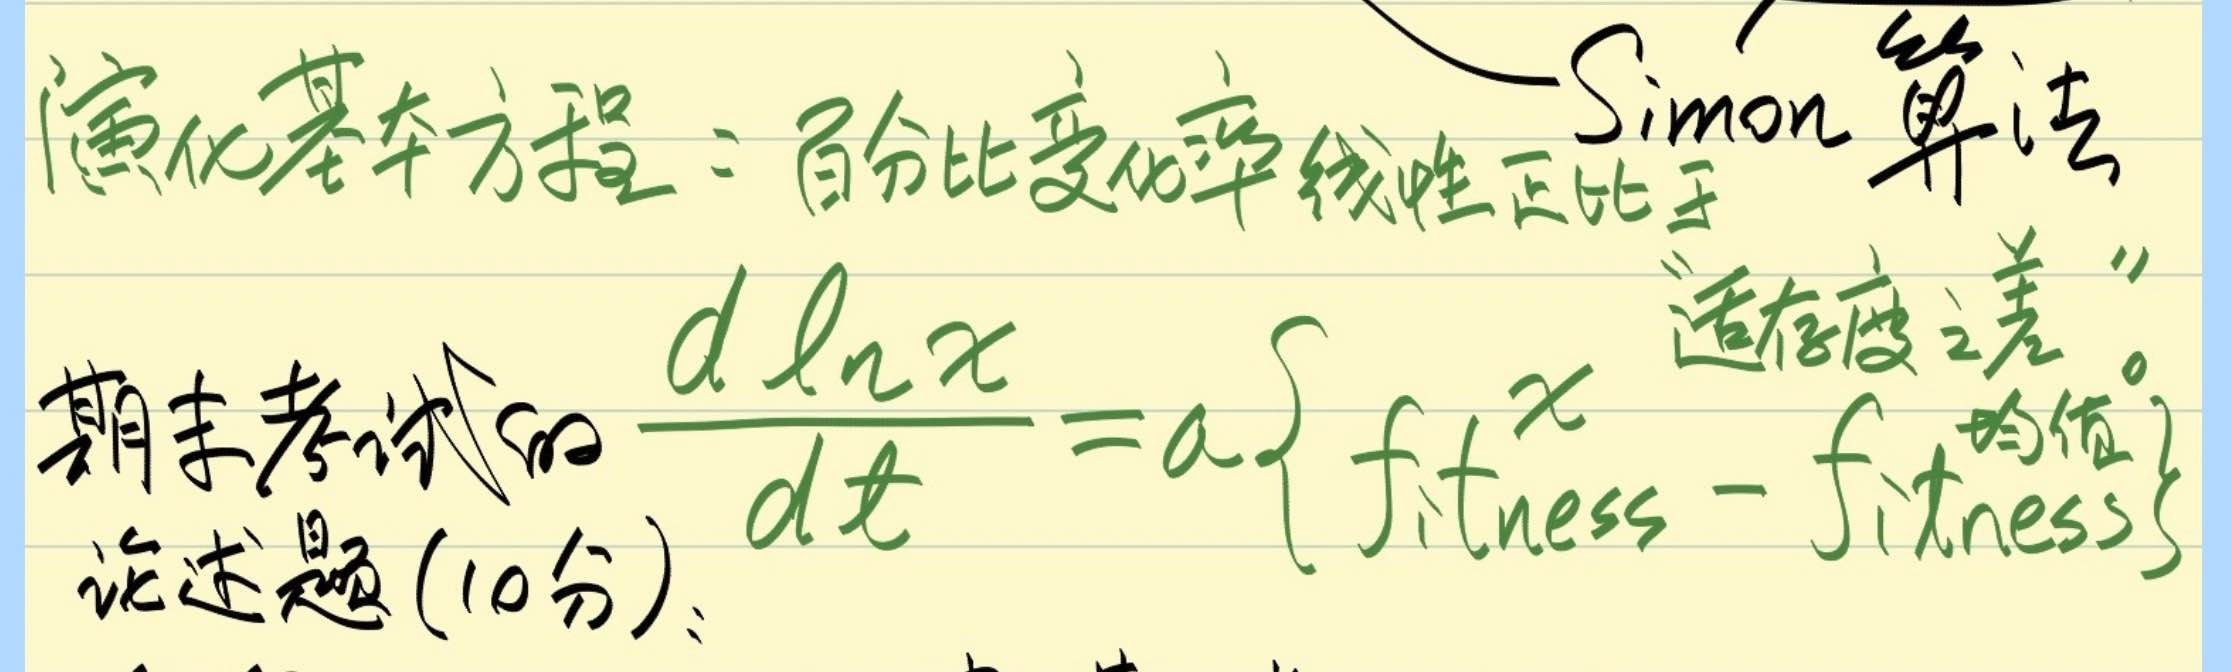 Simon 算法
演化基本方程：百分比变化率线性正比于
“适存度之差”。
d ln x / dt = a { fitness^x - fitness^均值 }
期末考试的
论述题(10分)：